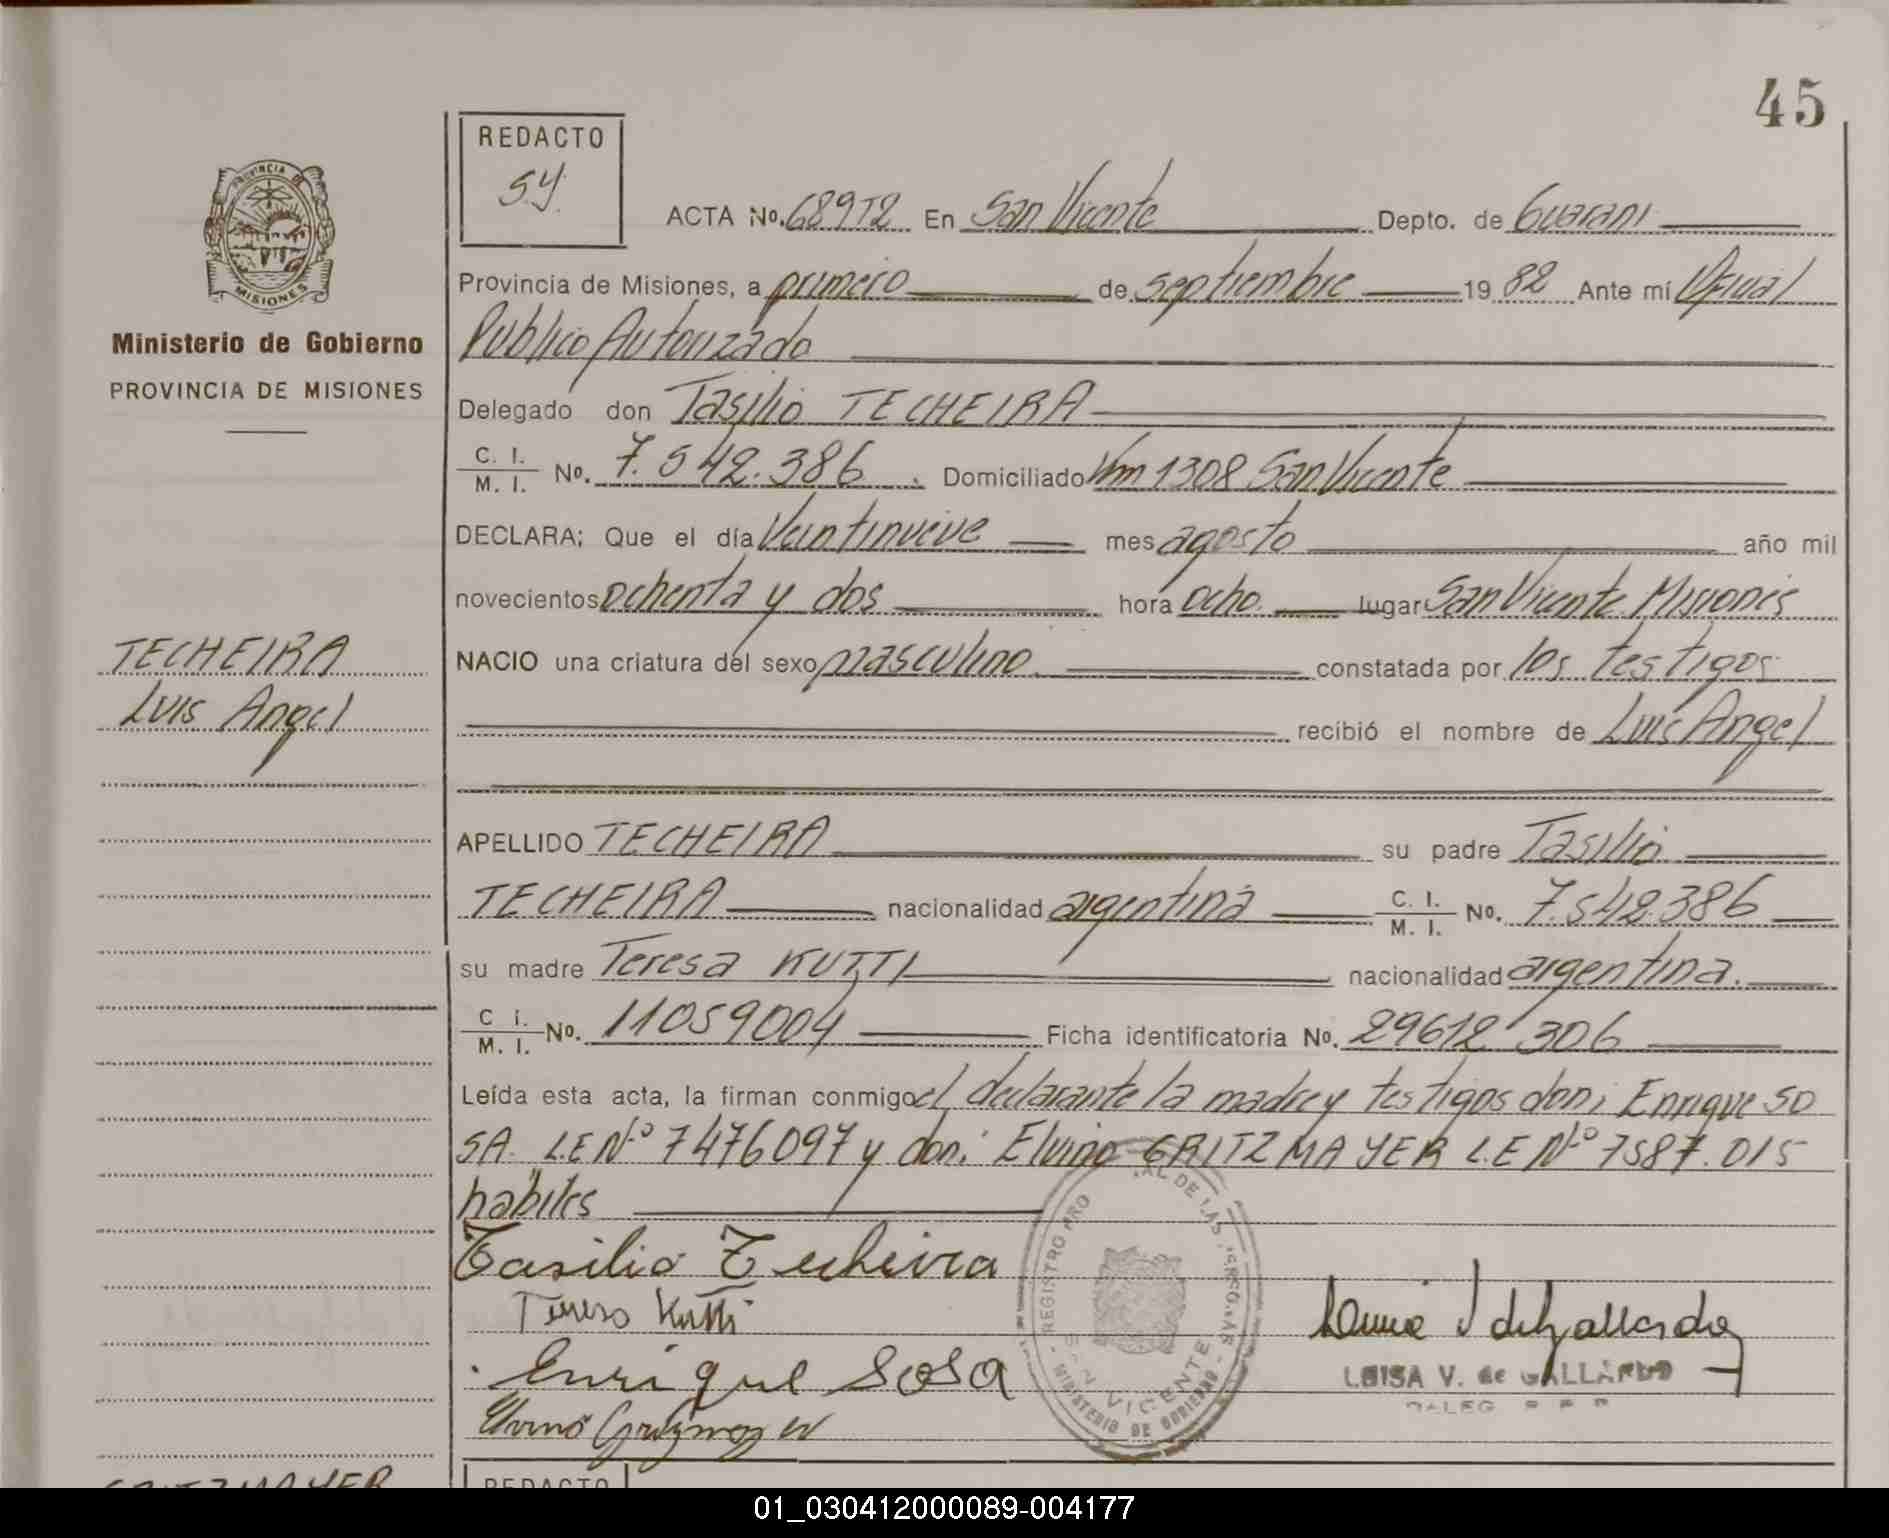 45
REDACTO
S.Y.
PROVINCIA DE
MISIONES
Ministerio de Gobierno
PROVINCIA DE MISIONES
ACTA No. 689T2 En San Vicente Depto. de Guarani
Provincia de Misiones, a primero de septiembre 1982 Ante mí Oficial
Publico Autorizado
Delegado don Tasilio TECHEIRA
C. I. / M. I. No. 7.542.386. Domiciliado Km 1308 San Vicente
DECLARA; Que el día Veintinueve mes agosto año mil
novecientos ochenta y dos hora ocho lugar San Vicente Misiones
NACIO una criatura del sexo masculino. constatada por los testigos
recibió el nombre de Luis Angel
TECHEIRA
Luis Angel
APELLIDO TECHEIRA su padre Tasilio
TECHEIRA nacionalidad argentina C. I. / M. I. No. 7.542.386
su madre Teresa KUTTI nacionalidad argentina.
C I. / M. I. No. 11059004 Ficha identificatoria No. 29612306
Leída esta acta, la firman conmigo el declarante la madre y testigos don: Enrique SO
SA. L.E Nº 7476097 y don: Elvino GRITZMAYER L.E Nº 7587.015
habiles
Tasilio Techeira
Teresa Kutti
Enrique Sosa
REGISTRO PRO AL DE LAS PERSONAS
SAN VICENTE
MINISTERIO DE GOBIERNO
LUISA V. de GALLARDO
GRITZMAYER
REDACTO
01_030412000089-004177